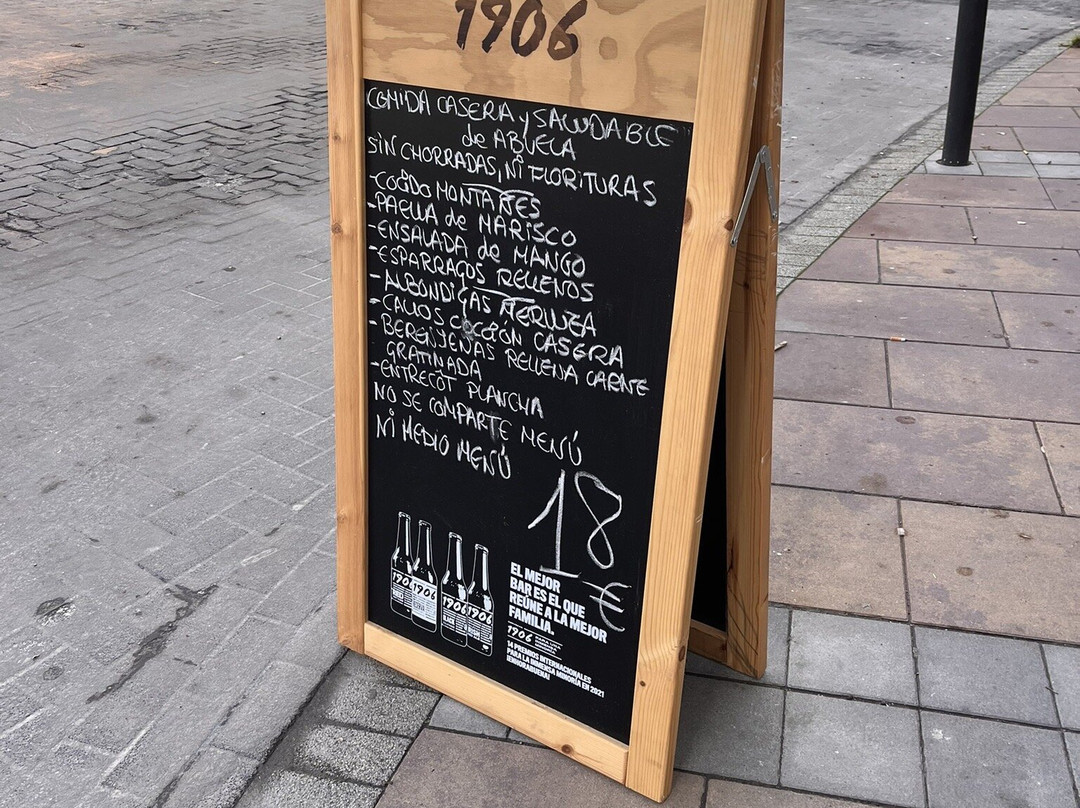 1906
COMIDA CASERA y SALUDABLE
de ABUELA
SIN CHORRADAS, NI FLORITURAS
-COCIDO MONTAÑES
-PAELLA de MARISCO
-ENSALADA de MANGO
-ESPARRAGOS RELLENOS
-ALBONDIGAS MERLUZA
-CALLOS COCCIÓN CASERA
-BERENJENAS RELLENA CARNE
GRATINADA
-ENTRECOT PLANCHA
NO SE COMPARTE MENÚ
NI MEDIO MENÚ
18
€
1906 1906 1906 1906
EL MEJOR
BAR ES EL QUE
REÚNE A LA MEJOR
FAMILIA.
1906
14 PREMIOS INTERNACIONALES
PARA LA INMENSA MINORÍA EN 2021
¡ENHORABUENA!